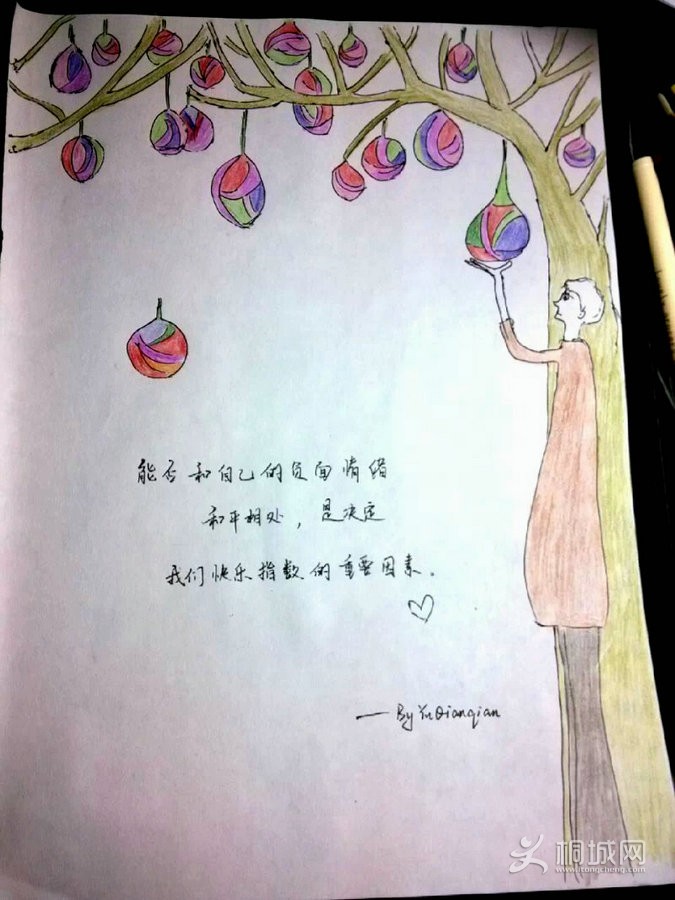 能否和自己的负面情绪
和平相处，是决定
我们快乐指数的重要因素.
—By Yu Qianqian
桐城网
www.itongcheng.com